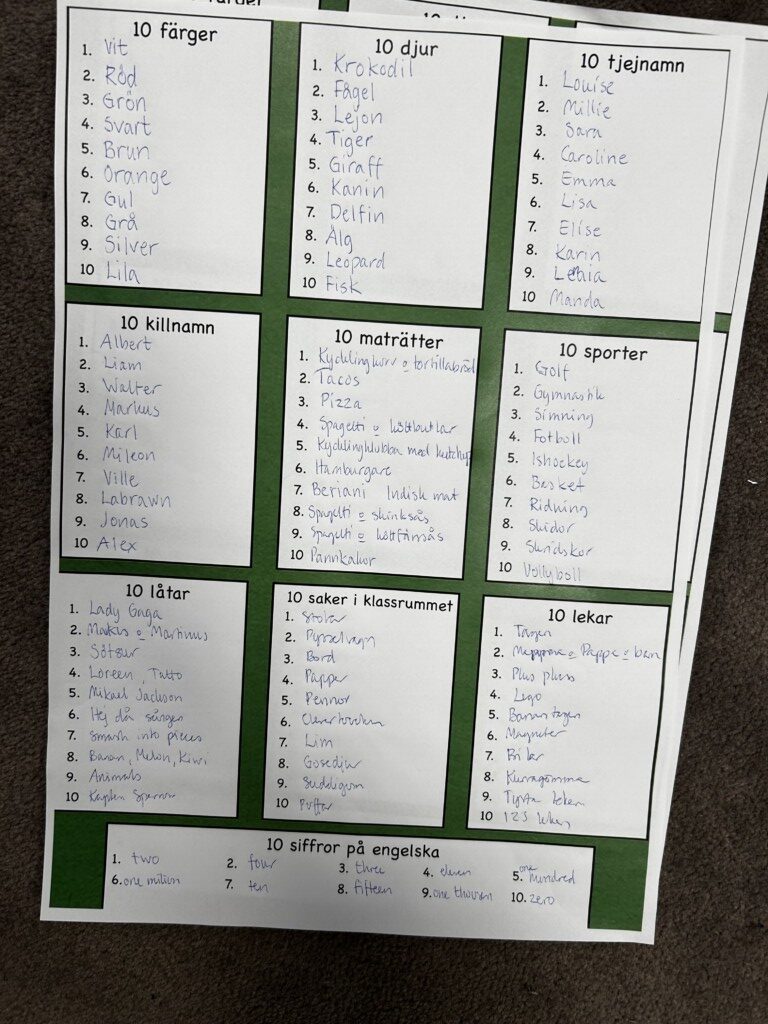 10 färger
1. Vit
2. Röd
3. Grön
4. Svart
5. Brun
6. Orange
7. Gul
8. Grå
9. Silver
10 Lila
10 djur
1. Krokodil
2. Fågel
3. Lejon
4. Tiger
5. Giraff
6. Kanin
7. Delfin
8. Älg
9. Leopard
10 Fisk
10 tjejnamn
1. Louise
2. Millie
3. Sara
4. Caroline
5. Emma
6. Lisa
7. Elise
8. Karin
9.
10 Manda
10 killnamn
1. Albert
2. Liam
3. Walter
4. Markus
5. Karl
6. Mileon
7. Ville
8. Labrawn
9. Jonas
10 Alex
10 maträtter
1. Kycklingkorv o tortillabröd
2. Tacos
3. Pizza
4. Spagetti o köttbullar
5. Kycklingklubba med ketchup
6. Hamburgare
7. Beriani Indisk mat
8. Spagetti o skinksås
9. Spagetti o köttfärssås
10 Pannkakor
10 sporter
1. Golf
2. Gymnastik
3. Simning
4. Fotboll
5. Ishockey
6. Basket
7. Ridning
8. Skidor
9. Skridskor
10 Vollyboll
10 låtar
1. Lady Gaga
2. Markus o Martinus
3. Sötsur
4. Loreen, Tatto
5. Mikael Jackson
6. Hej då sången
7. Smash into pieces
8. Banan, Melon, Kiwi
9. Animals
10 Kapten Sparrow
10 saker i klassrummet
1. Stolar
2. Pysselvagn
3. Bord
4. Papper
5. Pennor
6.
7. Lim
8. Gosedjur
9. Suddigum
10 Puffar
10 lekar
1. Tagen
2. o Pappa o barn
3. Plus pluss
4. Lego
5. Banantagen
6. Magneter
7. Bilar
8. Kurragömma
9. Tysta leken
10 123 leken
10 siffror på engelska
1. two
2. four
3. three
4. eleven
5. one hundred
6. one milion
7. ten
8. fifteen
9. one thousen
10. zero